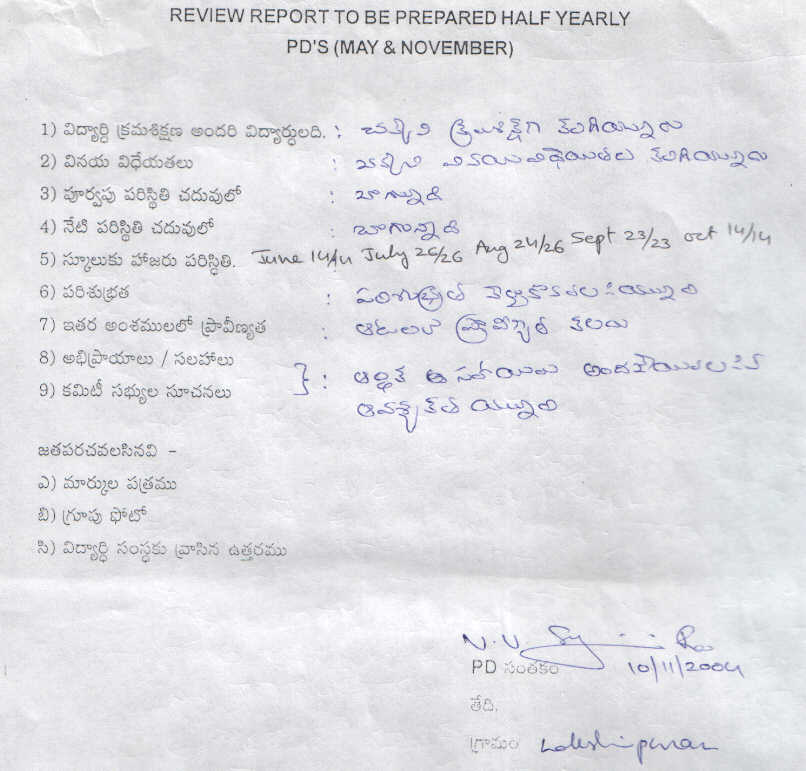 REVIEW REPORT TO BE PREPARED HALF YEARLY
PD'S (MAY & NOVEMBER)
1) విద్యార్ధి క్రమశిక్షణ అందరి విద్యార్ధులది. : చక్కని క్రమశిక్షణ కలిగియున్నారు
2) వినయ విధేయతలు : చక్కని వినయ విధేయతలు కలిగియున్నారు
3) పూర్వపు పరిస్థితి చదువులో : బాగున్నది
4) నేటి పరిస్థితి చదువులో : బాగున్నది
5) స్కూలుకు హాజరు పరిస్థితి. June 14/14 July 26/26 Aug 24/26 Sept 23/23 oct 14/14
6) పరిశుభ్రత : పరిశుభ్రత
7) ఇతర అంశములలో ప్రావీణ్యత : ఆటలలో ప్రావీణ్యత కలదు
8) అభిప్రాయాలు / సలహాలు
9) కమిటీ సభ్యుల సూచనలు } : ఆర్థిక సహాయము
ఆవశ్యకత యున్నది
జతపరచవలసినవి -
ఎ) మార్కుల పత్రము
బి) గ్రూపు ఫోటో
సి) విద్యార్ధి సంస్ధకు వ్రాసిన ఉత్తరము
N. V.
PD సంతకం 10/11/2004
తేది.
గ్రామం